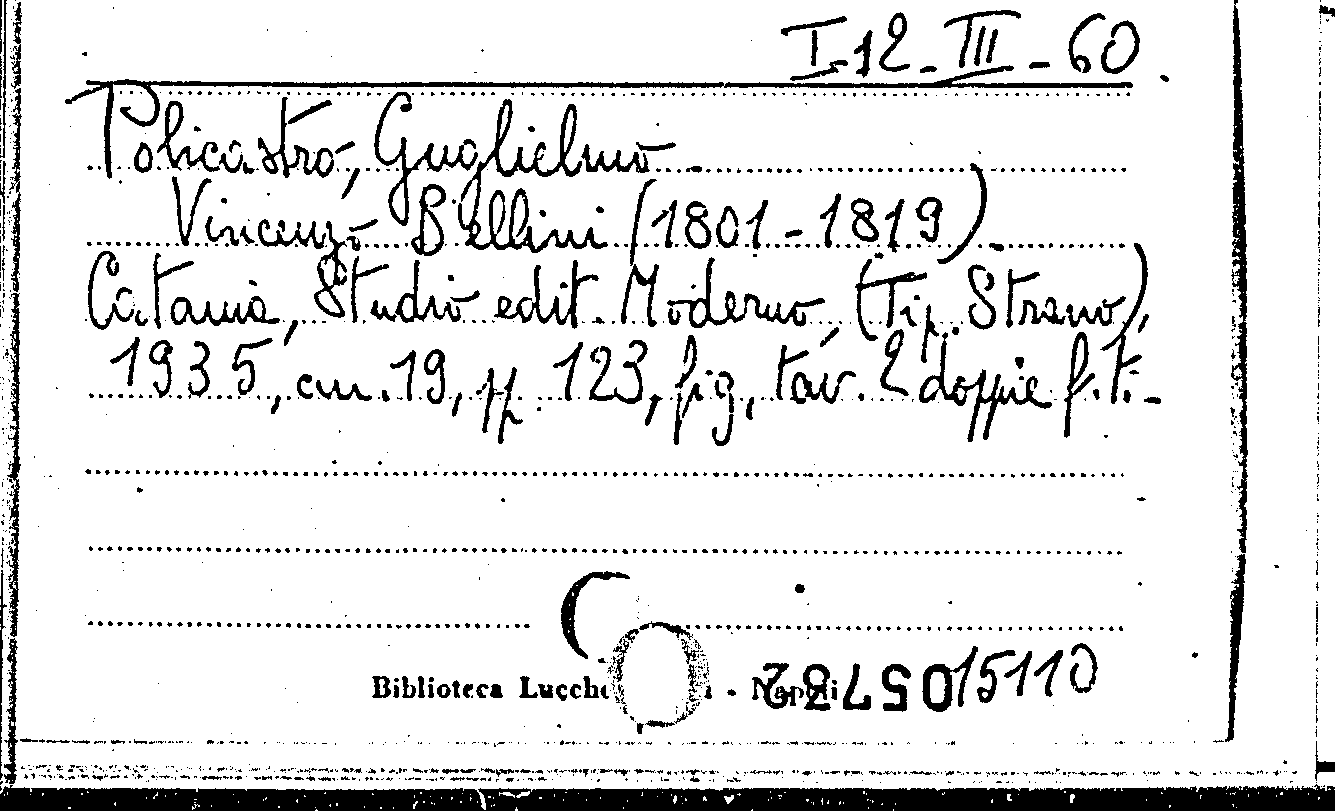 I-12-III-60.
Policastro, Guglielmo.
Vincenzo Bellini (1801-1819).
Catania, Studio edit. Moderno, (Tip. Strano),
1935, cm. 19, pp. 123, fig, tav. 2 doppie f.t.-
Biblioteca - Napoli 15110